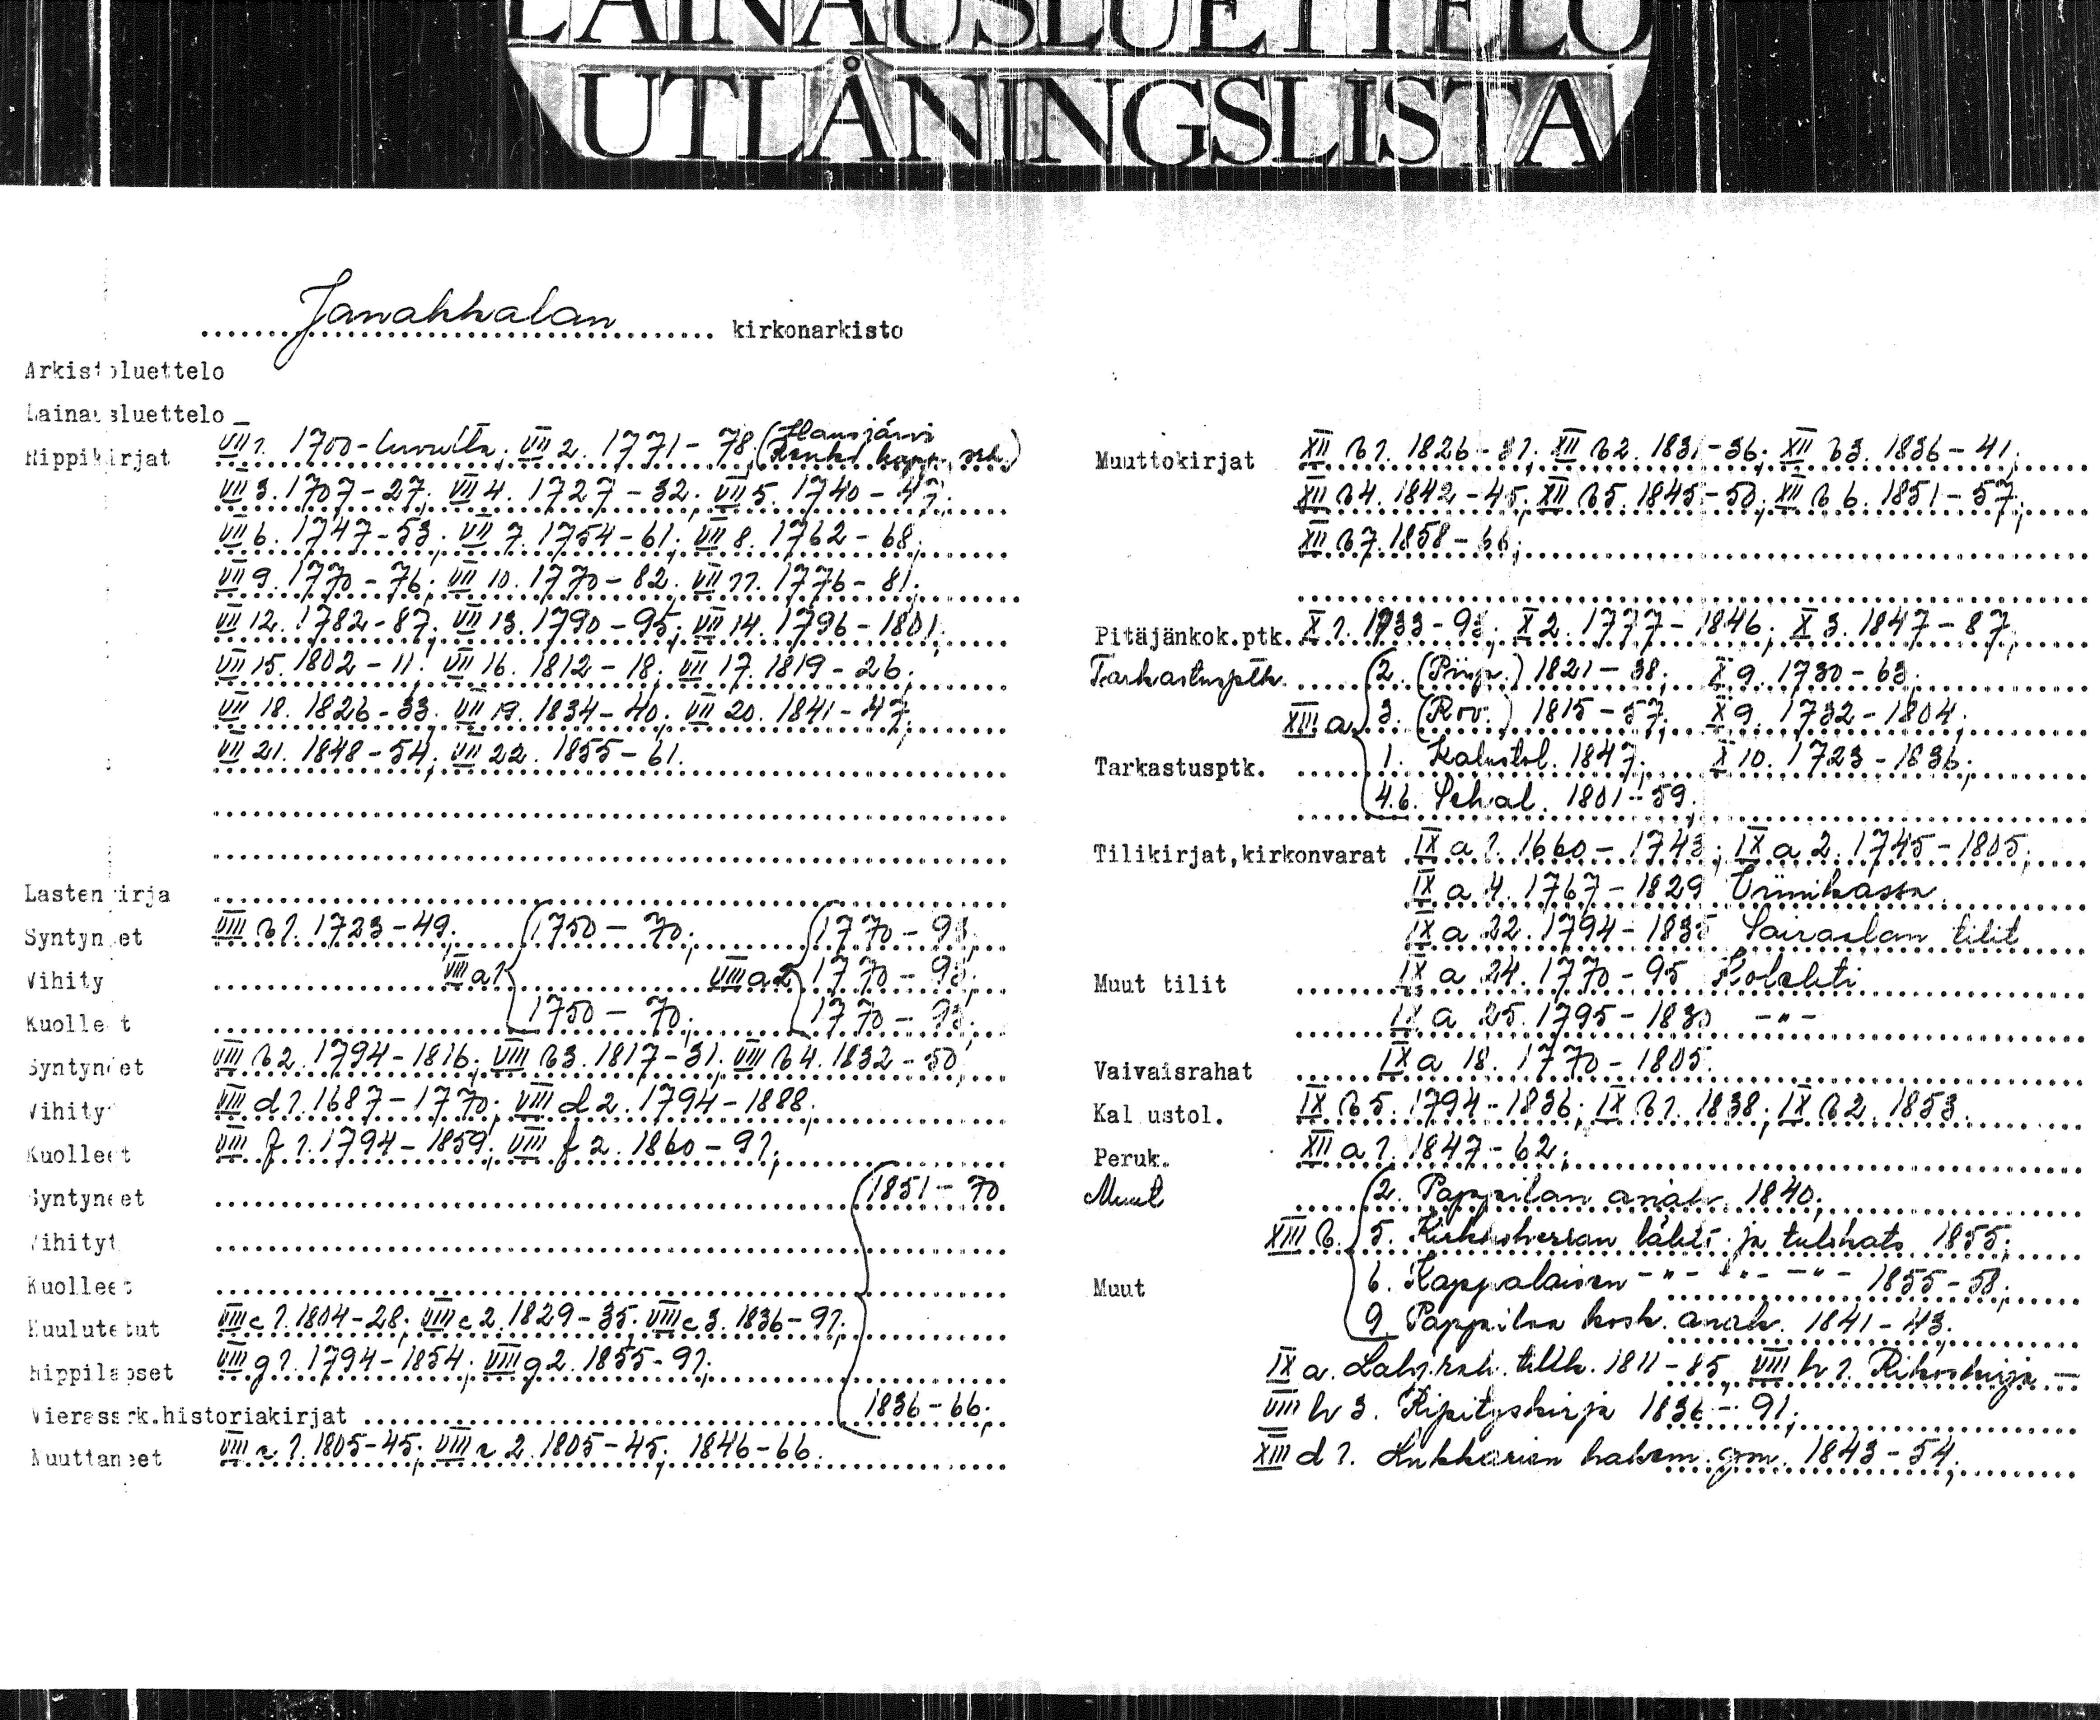 LAINAUSLUETTELO
UTLÅNINGSLISTA
Janakkalan kirkonarkisto
Arkistoluettelo
Lainausluettelo
Rippikirjat VII 1. 1700-luvulta; VII 2. 1771-78 (Hausjärvi kapp. srk.)
VII 3. 1707-27; VII 4. 1727-32; VII 5. 1740-47;
VII 6. 1747-53; VII 7. 1754-61; VII 8. 1762-68;
VII 9. 1770-76; VII 10. 1770-82; VII 11. 1776-81;
VII 12. 1782-87; VII 13. 1790-95; VII 14. 1796-1801;
VII 15. 1802-11; VII 16. 1812-18; VII 17. 1819-26;
VII 18. 1826-33; VII 19. 1834-40; VII 20. 1841-47;
VII 21. 1848-54; VII 22. 1855-61.
Lastenkirja
Syntyneet VIII b 1. 1723-49; 1750-70; 1770-93;
Vihityt VIII a 1 VIII a 2 1770-93;
Kuolleet 1750-70; 1770-93;
Syntyneet VIII b 2. 1794-1816; VIII b 3. 1817-31; VIII b 4. 1832-50;
Vihityt VIII d 1. 1687-1770; VIII d 2. 1794-1888;
Kuolleet VIII f 1. 1794-1859; VIII f 2. 1860-91;
Syntyneet 1851-70
Vihityt
Kuolleet
Kuulutetut VIII c 1. 1804-28; VIII c 2. 1829-35; VIII c 3. 1836-91;
Rippilapset VIII g 1. 1794-1854; VIII g 2. 1855-91;
Vierassrk.historiakirjat 1836-66;
Muuttaneet VIII 1. 1805-45; VIII 2. 1805-45; 1846-66.
Muuttokirjat XII b 1. 1826-31; XII b 2. 1831-36; XII b 3. 1836-41;
XII b 4. 1842-45; XII b 5. 1845-50; XII b 6. 1851-57;
XII b 7. 1858-66;
Pitäjänkok.ptk. X 1. 1733-93; X 2. 1777-1846; X 3. 1847-87;
Tarkastusptk. 2. (Piisp.) 1821-38; X 9. 1730-63;
XIII a 3. (Rov.) 1815-57; X 9. 1732-1804;
Tarkastusptk. 1. Kalustol. 1847; X 10. 1723-1836;
4.6. Sekal. 1801-59;
Tilikirjat,kirkonvarat IX a 1. 1660-1743; IX a 2. 1745-1805;
IX a 4. 1767-1829 Viinikassa
IX a 22. 1794-1835 Sairaalan tilit
Muut tilit IX a 24. 1770-95 Kolehti
IX a 25. 1795-1830 -"-
Vaivaisrahat IX a 18. 1770-1805.
Kalustol. IX b 5. 1794-1836; IX b 1. 1838; IX b 2. 1853.
Peruk. XII a 1. 1847-62;
Muut 2. Pappilan asiak. 1840;
XIII b. 5. Kirkkoherran lähet. ja tulokats 1855;
Muut 6. Kappalaisen -"- -"- -"- 1855-58;
9. Pappilan kosk. asiak. 1841-43.
IX a. rah. tilik. 1811-85, VIII h 1. Rikoskirja -
VIII h 3. Ripityskirja 1836-91;
XIII d 1. Lukkarien hakem. ym. 1843-54;